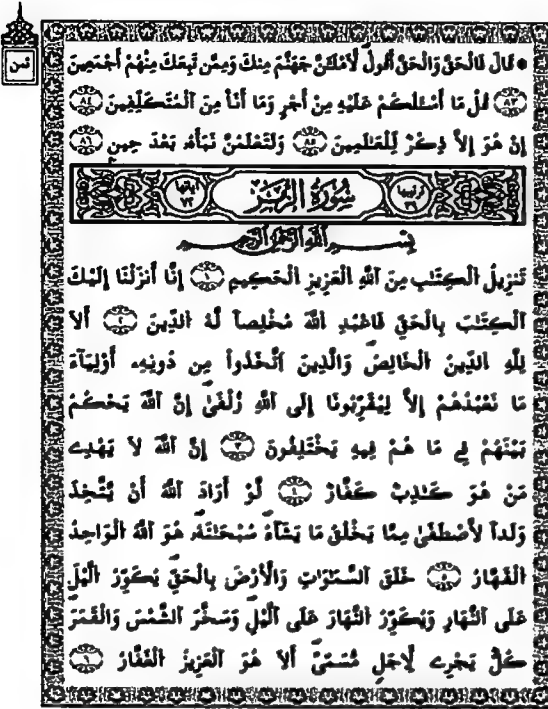 ثمن
* قَالَ فَالْحَقَّ وَالْحَقَّ أَقُولُ لَأَمْلَأَنَّ جَهَنَّمَ مِنكَ وَمِمَّن تَبِعَكَ مِنْهُمْ أَجْمَعِينَ
٨٣ قُلْ مَا أَسْـَٔلُكُمْ عَلَيْهِ مِنْ أَجْرٍ وَمَا أَنَا مِنَ ٱلْمُتَكَلِّفِينَ ٨٤
إِنْ هُوَ إِلَّا ذِكْرٌ لِّلْعَٰلَمِينَ ٨٥ وَلَتَعْلَمُنَّ نَبَأَهُ بَعْدَ حِينٍ ٨٦
ترتيبها ٣٩ سُورَةُ الزُّمَرِ آياتها ٧٢
بِسْمِ اللَّهِ الرَّحْمَٰنِ الرَّحِيمِ
تَنزِيلُ ٱلْكِتَٰبِ مِنَ ٱللَّهِ ٱلْعَزِيزِ ٱلْحَكِيمِ ١ إِنَّا أَنزَلْنَا إِلَيْكَ
ٱلْكِتَٰبَ بِالْحَقِّ فَاعْبُدِ ٱللَّهَ مُخْلِصاً لَّهُ ٱلدِّينَ ٢ أَلَا
لِلَّهِ ٱلدِّينُ ٱلْخَالِصُ وَالَّذِينَ ٱتَّخَذُوا مِن دُونِهِۦ أَوْلِيَآءَ
مَا نَعْبُدُهُمْ إِلَّا لِيُقَرِّبُونَا إِلَى ٱللَّهِ زُلْفَىٰ إِنَّ ٱللَّهَ يَحْكُمُ
بَيْنَهُمْ فِي مَا هُمْ فِيهِ يَخْتَلِفُونَ ٣ إِنَّ ٱللَّهَ لَا يَهْدِے
مَنْ هُوَ كَٰذِبٌ كَفَّارٌ ٤ لَّوْ أَرَادَ ٱللَّهُ أَنْ يَّتَّخِذَ
وَلَداً لَّاصْطَفَىٰ مِمَّا يَخْلُقُ مَا يَشَآءُ سُبْحَٰنَهُ هُوَ ٱللَّهُ ٱلْوَاحِدُ
ٱلْقَهَّارُ ٥ خَلَقَ ٱلسَّمَٰوَٰتِ وَالْأَرْضَ بِالْحَقِّ يُكَوِّرُ ٱلَّيْلَ
عَلَى ٱلنَّهَارِ وَيُكَوِّرُ ٱلنَّهَارَ عَلَى ٱلَّيْلِ وَسَخَّرَ ٱلشَّمْسَ وَالْقَمَرَ
كُلٌّ يَجْرِے لِأَجَلٍ مُّسَمًّى أَلَا هُوَ ٱلْعَزِيزُ ٱلْغَفَّارُ ٦